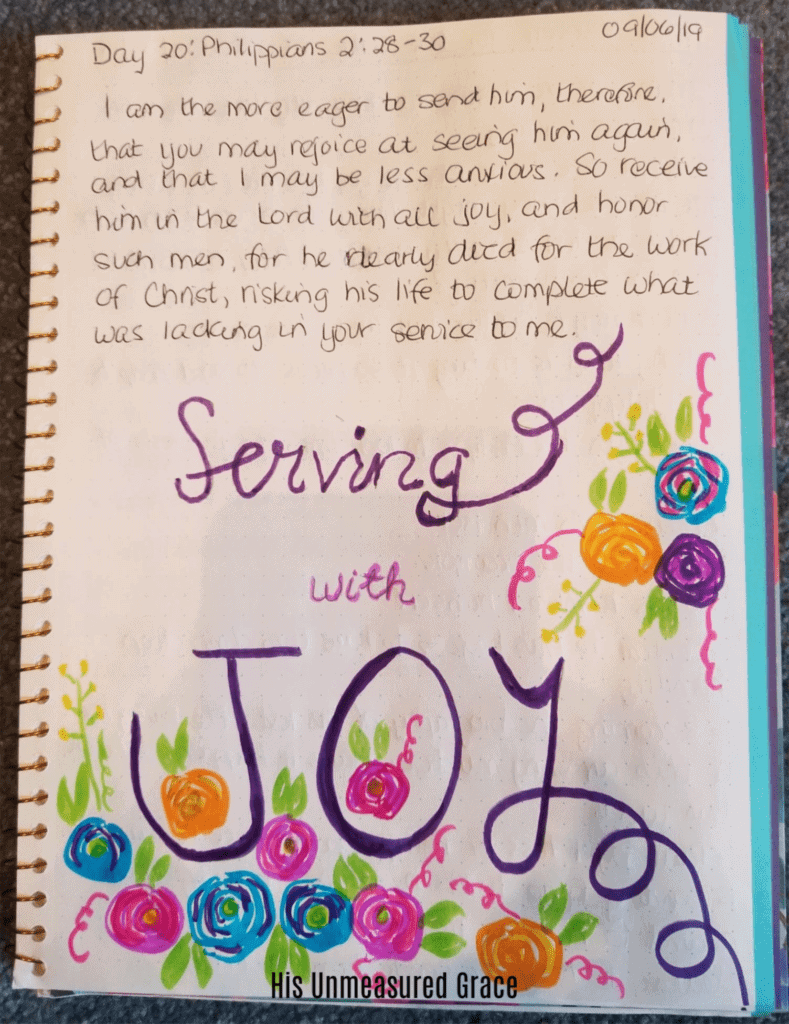 Day 20: Philippians 2:28-30
09/06/19
I am the more eager to send him, therefore,
that you may rejoice at seeing him again,
and that I may be less anxious. So receive
him in the Lord with all joy, and honor
such men, for he nearly died for the work
of Christ, risking his life to complete what
was lacking in your service to me.
Serving
with
JOY
His Unmeasured Grace